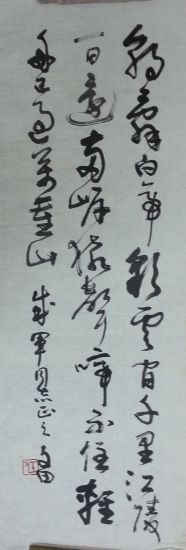 朝辭白帝彩雲间千里江陵
一日還两岸猿聲啼不住輕
舟已過萬重山 成軍同志正之